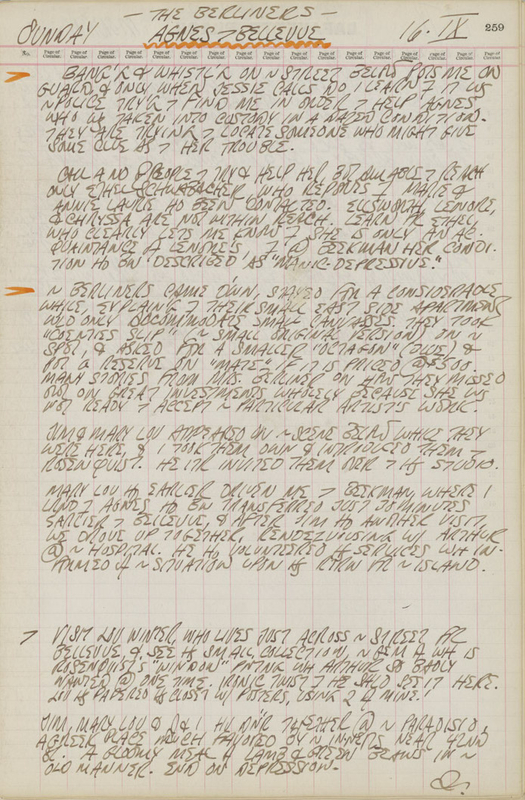 — THE BERLINERS —
SUNDAY AGNES → BELLEVUE 16·IX 259
No. Page of Circular. Page of Circular. Page of Circular. Page of Circular. Page of Circular. Page of Circular. Page of Circular. Page of Circular. Page of Circular. Page of Circular. Page of Circular. Page of Circular. Page of Circular. Page of Circular. Page of Circular. Page of Circular. Page of Circular.
& WHISTLR ON ~ STREET BELOW PUTS ME ON
GUARD, & ONLY WHEN JESSIE CALLS DO I LEARN IT WS
~ POLICE TRYG T FIND ME IN ORDER T HELP AGNES
WHO WS TAKEN INTO CUSTODY IN A DAZED CONDITION.
THEY ARE TRYING T LOCATE SOMEONE WHO MIGHT GIVE
SOME CLUE AS T HER TROUBLE.
CALL AND PEOPLE T TRY & HELP HER, BT UNABLE T REACH
ONLY ETHEL WHO REPORTS T MARIE &
ANNIE HD BEEN CONTACTED. ELLSWORTH, LENORE,
& CHRYSSA ARE NOT WITHIN REACH. LEARN FR ETHEL,
WHO CLEARLY LETS ME KNOW T SHE IS ONLY AN AC-
QUAINTANCE OF LENORE'S, T @ BEEKMAN HER CONDI-
TION HD BN DESCRIBED AS "MANIC-DEPRESSIVE."
~ BERLINERS CAME DWN, STAYED FR A CONSIDERABLE
WHILE, EXPLAING T THEIR SMALL EAST SIDE APARTMENT
WD ONLY ACCOMMODATE SMALL CANVASES. THEY TOOK
"COENTIES SLIP" (~ SMALL ORIGINAL VERSION) ON ~
SPOT, & ASKED FR A SMALLER "OCTAGON" &
PUT A RESERVE ON "MATE" IF IT IS PRICED @ $500.
MANY STORIES FROM MRS. BERLINER ON HOW THEY MISSED
OUT ON GREAT INVESTMENTS WHOLELY BECAUSE SHE WS
NOT READY T ACCEPT ~ PARTICULAR ARTIST'S WORK.
JIM & MARY LOU APPEARED ON ~ SCENE BELOW WHILE THEY
WERE HERE, & I TOOK THEM DWN & INTRODUCED THEM T
ROSENQUIST. HE LTR INVITED THEM OVER T HS STUDIO.
MARY LOU HD EARLIER DRIVEN ME T BEEKMAN, WHERE I
FIND T AGNES HD BN TRANSFERRED JUST 20 MINUTES
EARLIER T BELLEVUE, & AFTER JIM HD ANOTHER VISIT,
WE DROVE UP TOGETHER, RENDEZVOUSING W/ ARTHUR
@ ~ HOSPITAL. HE HD VOLUNTEERED HS SERVICES WH IN-
FORMED OF ~ SITUATION UPON HS RTRN FR ~ ISLAND.
VISIT LOU WINTER, WHO LIVES JUST ACROSS ~ STREET FR
BELLEVUE, & SEE HS SMALL COLLECTION, ~ GEM OF WH IS
ROSENQUIST'S "WINDOW" PNTNG WH ARTHUR SO BADLY
WANTED @ ONE TIME. IRONIC TWIST T HE SHD SEE IT HERE.
LOU HS PAPERED HS CLOSET W/ POSTERS, USING 2 OF MINE!
JIM, MARY LOU & A & I HV DNR TGETHER @ ~ PARADISO,
A GREEK PLACE MUCH FAVORED BY ~ NEAR 42ND
&. A GLOOMY MEAL OF LAMB & GREEN BEANS IN ~
OLD MANNER. END ON DEPRESSION.